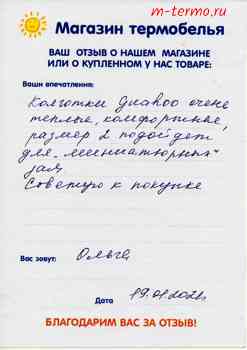 m-termo.ru
Магазин термобелья
ВАШ ОТЗЫВ О НАШЕМ МАГАЗИНЕ
ИЛИ О КУПЛЕННОМ У НАС ТОВАРЕ:
Ваши впечатления:
Колготки очень
теплые, комфортные,
размер 2 подойдет
для "миниатюрных"
дам
Советую к покупке
Вас зовут: Ольга
Дата 19.01.202
БЛАГОДАРИМ ВАС ЗА ОТЗЫВ!